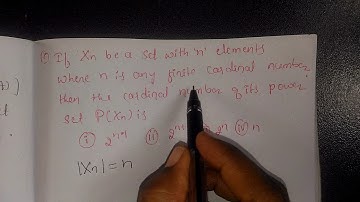 (i) If Xn be a set with 'n' elements
where n is any finite cardinal number,
then the cardinal number of its power
set P(Xn) is
(i) (ii) (iv) n
|Xn| = n